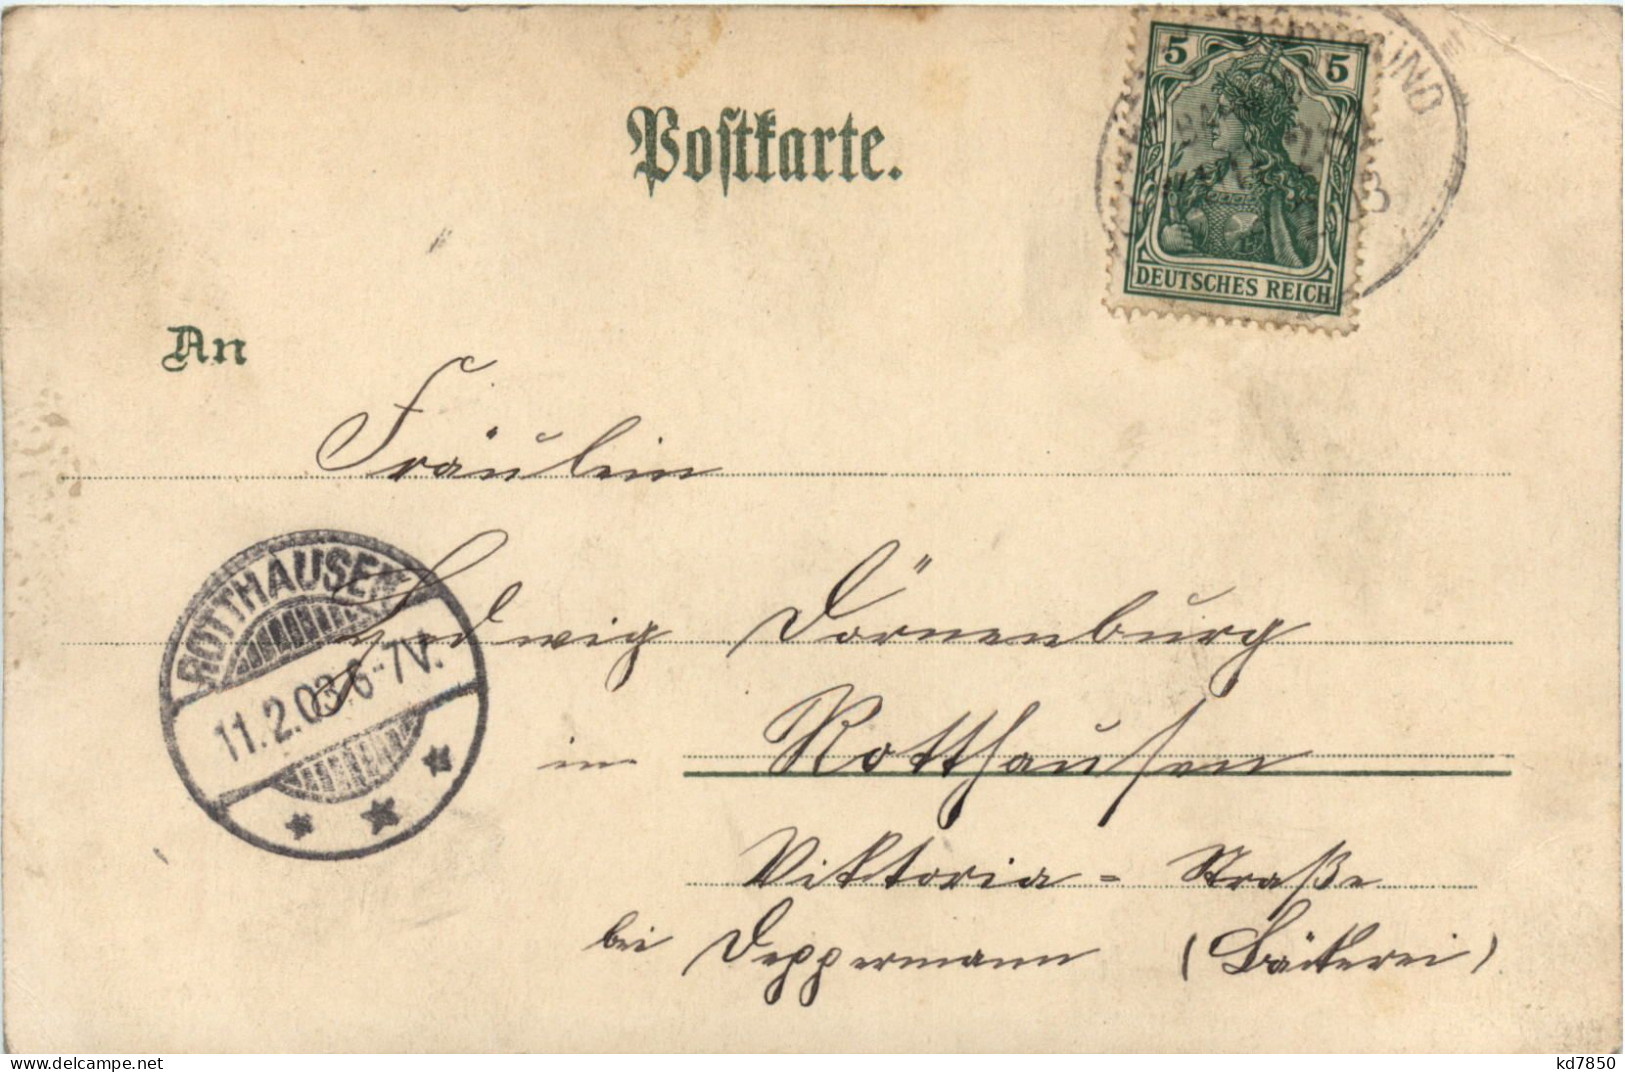 Postkarte.
5 5
DEUTSCHES REICH
An
Fräulein
ROTTHAUSEN
11.2.03. 6-7V.
Hedwig Dörnenburg
in Rotthausen
Viktoria-Straße
bei Deppermann (Bäckerei)
www.delcampe.net
kd7850